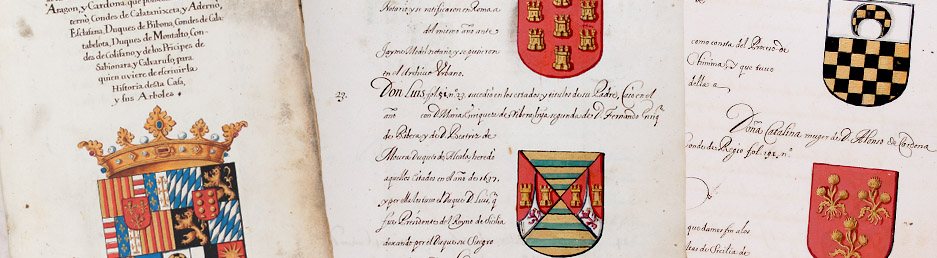 Aragon, y Cardona, que
terno, Condes de Calatanixeta, y Aderno,
Esclafana, Duques de Bibona, Condes de Cala-
tabelota, Duques de Montalto, Con-
des de Golisano, y de los Pricipes de
Sabionara, y Calvaruso, para
quien uviere de escrivir la
Historia desta Casa,
y sus Arboles.
Notario, y se ratificaron en Roma a
del mismo año ante
notario, y se
en el Archivo Urbano.
23. Don Luis fol. n.º 23. sucedió en los estados, y titulos de su Padre, Casò en el
año con D. Maria Enriquez de Ribera, hija segunda de D. Fernando Enriq
de Ribera, y de D. Beatriz de
Moura Duques de Alcala, heredò
aquellos Estados en el año de 1637.
y por el Duque D. Luis,
fue Presidentes del Reyno de Sicilia
dexando por el Duque su Suegro
como consta del Proceso de
della a
Doña Catalina muger de D. Alonso de Cardona
Conde de Regio fol. 192. n.º
de Sicilia de